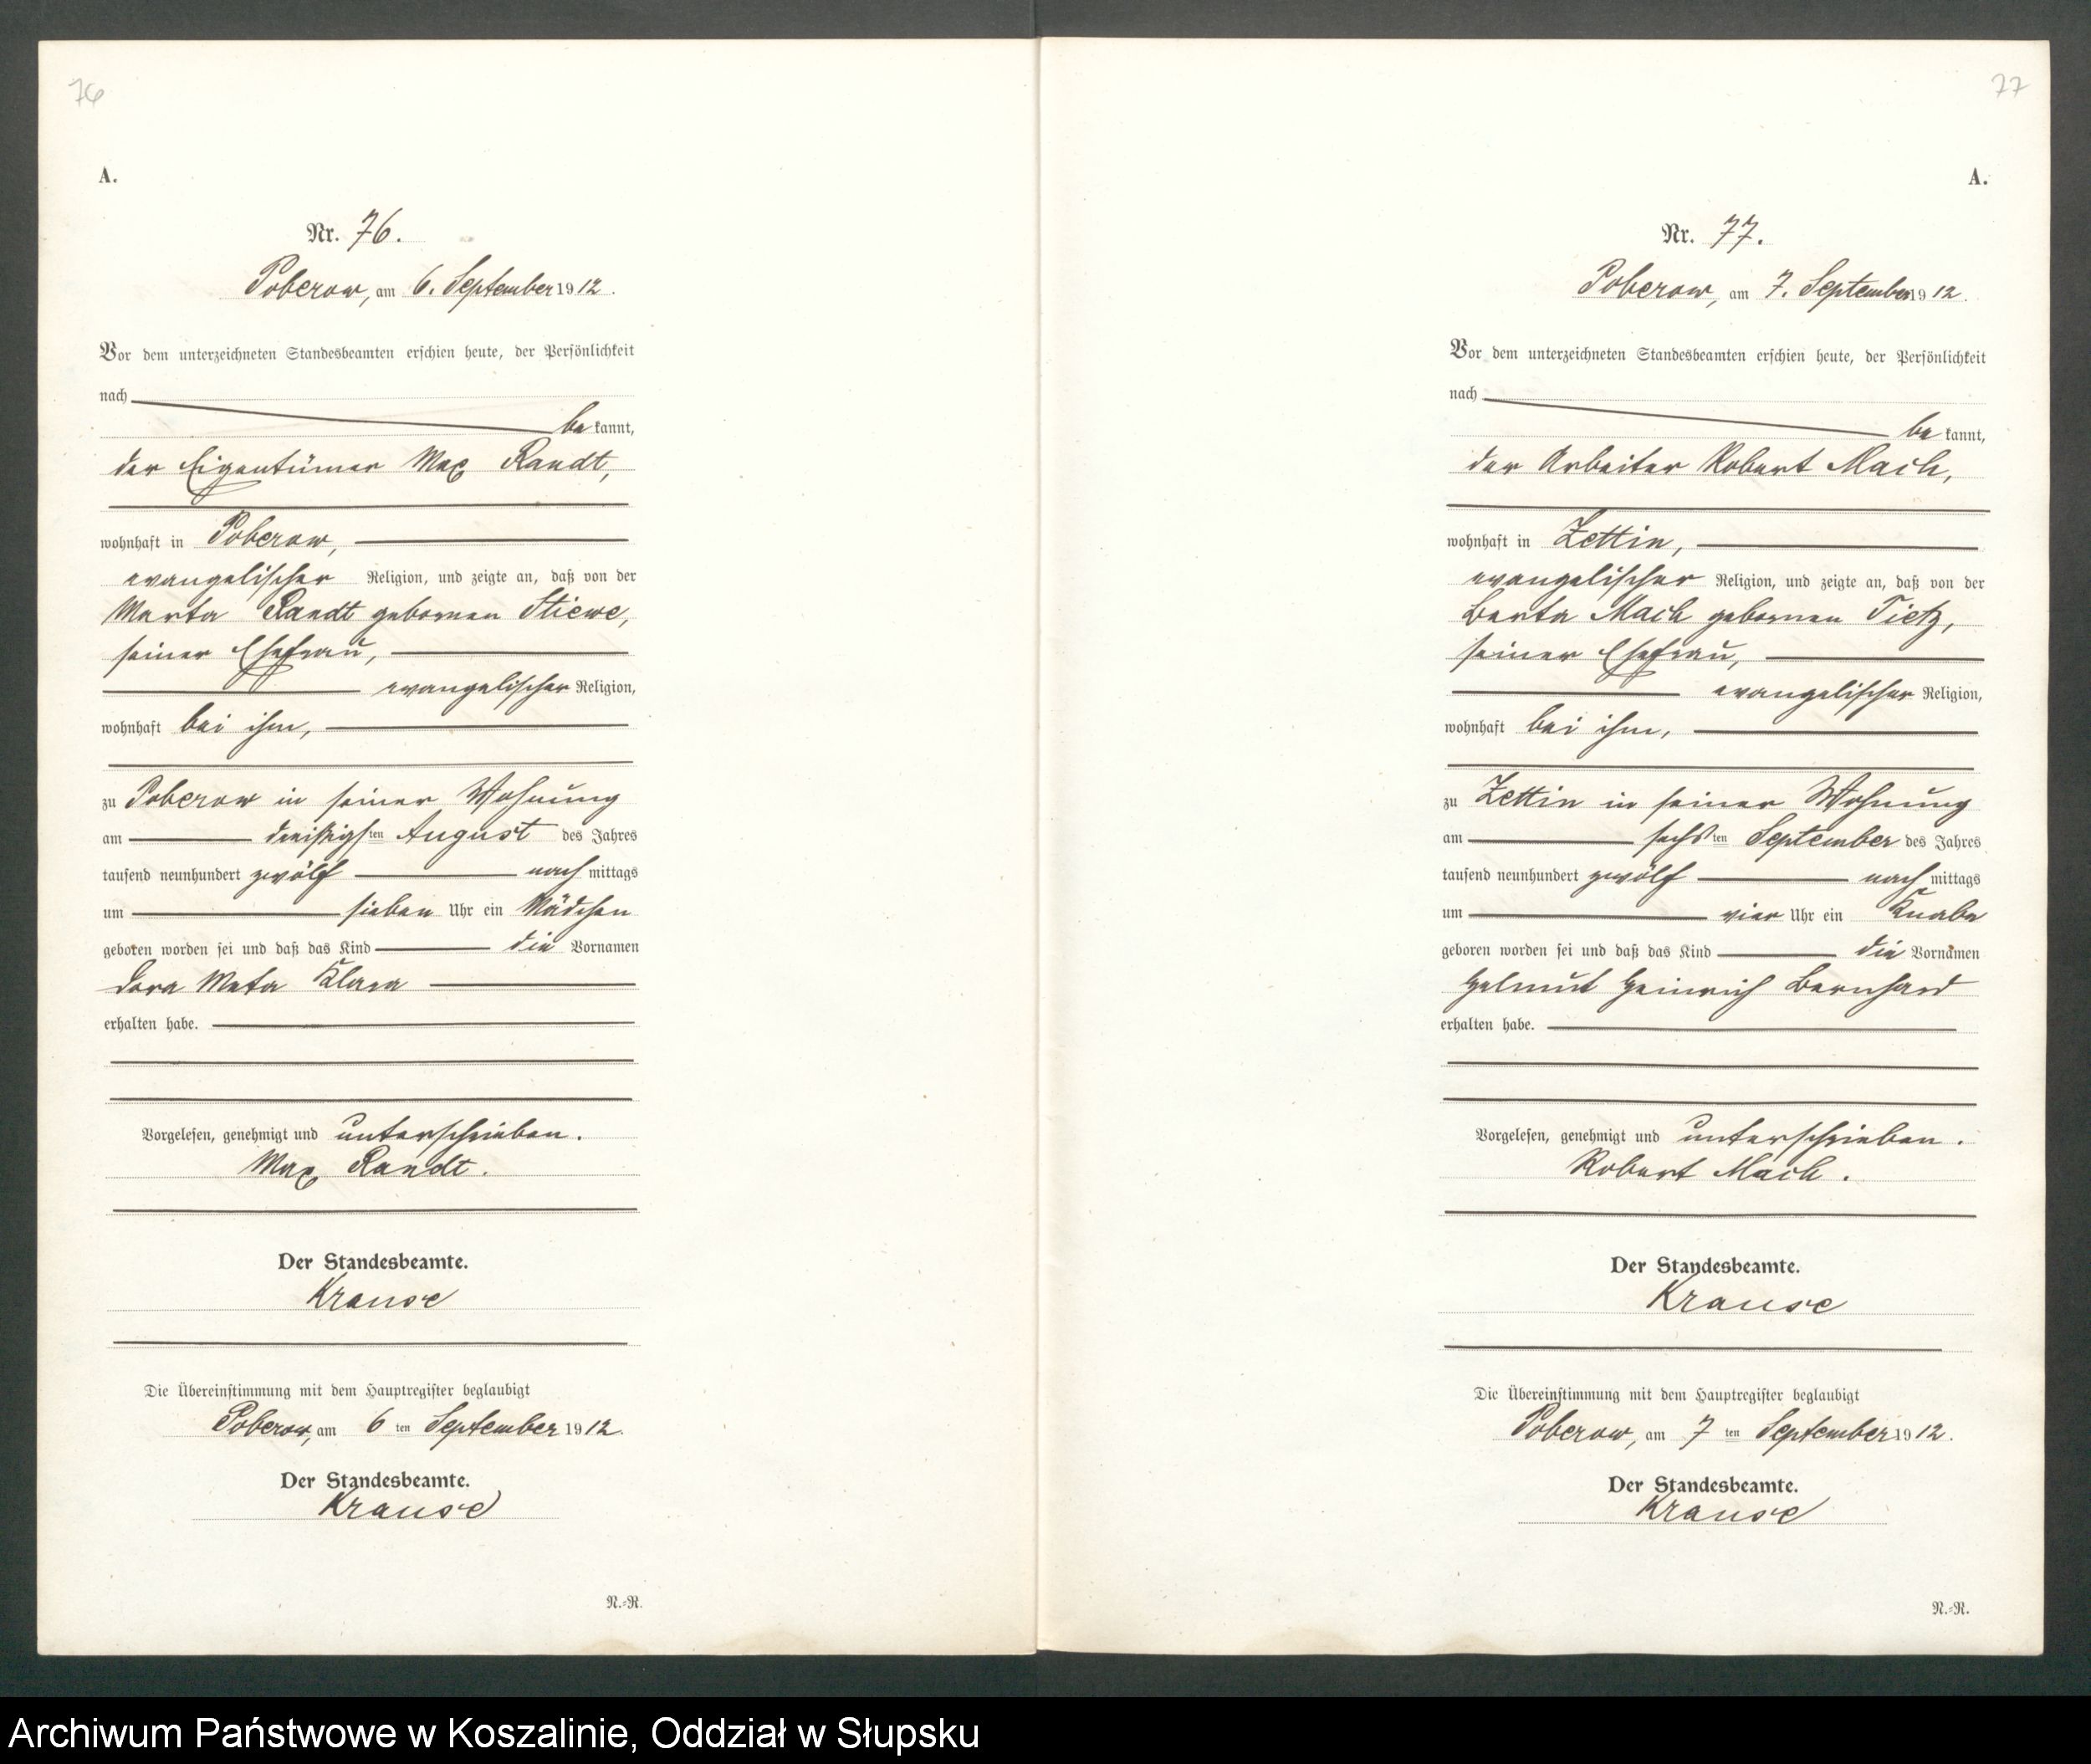 76
A.
Nr. 76.
Poberow, am 6. September 1912.
Vor dem unterzeichneten Standesbeamten erschien heute, der Persönlichkeit
nach
be kannt,
der Eigentümer Max Randt,
wohnhaft in Poberow,
evangelischer Religion, und zeigte an, daß von der
Marta Randt gebornen Stiewe,
seiner Ehefrau,
evangelischer Religion,
wohnhaft bei ihm,
zu Poberow in seiner Wohnung
am dreißigsten August des Jahres
tausend neunhundert zwölf nach mittags
um sieben Uhr ein Mädchen
geboren worden sei und daß das Kind die Vornamen
Dora Meta Klara
erhalten habe.
Vorgelesen, genehmigt und unterschrieben.
Max Randt.
Der Standesbeamte.
Krause
Die Übereinstimmung mit dem Hauptregister beglaubigt
Poberow, am 6 ten September 1912.
Der Standesbeamte.
Krause
N.=R.
77
A.
Nr. 77.
Poberow, am 7. September 1912.
Vor dem unterzeichneten Standesbeamten erschien heute, der Persönlichkeit
nach
be kannt,
der Arbeiter Robert Mach,
wohnhaft in Zettin,
evangelischer Religion, und zeigte an, daß von der
Berta Mach gebornen Tietz,
seiner Ehefrau,
evangelischer Religion,
wohnhaft bei ihm,
zu Zettin in seiner Wohnung
am sechsten September des Jahres
tausend neunhundert zwölf nach mittags
um vier Uhr ein Knabe
geboren worden sei und daß das Kind die Vornamen
Helmut Heinrich Bernhard
erhalten habe.
Vorgelesen, genehmigt und unterschrieben.
Robert Mach.
Der Standesbeamte.
Krause
Die Übereinstimmung mit dem Hauptregister beglaubigt
Poberow, am 7 ten September 1912.
Der Standesbeamte.
Krause
N.=R.
Archiwum Państwowe w Koszalinie, Oddział w Słupsku